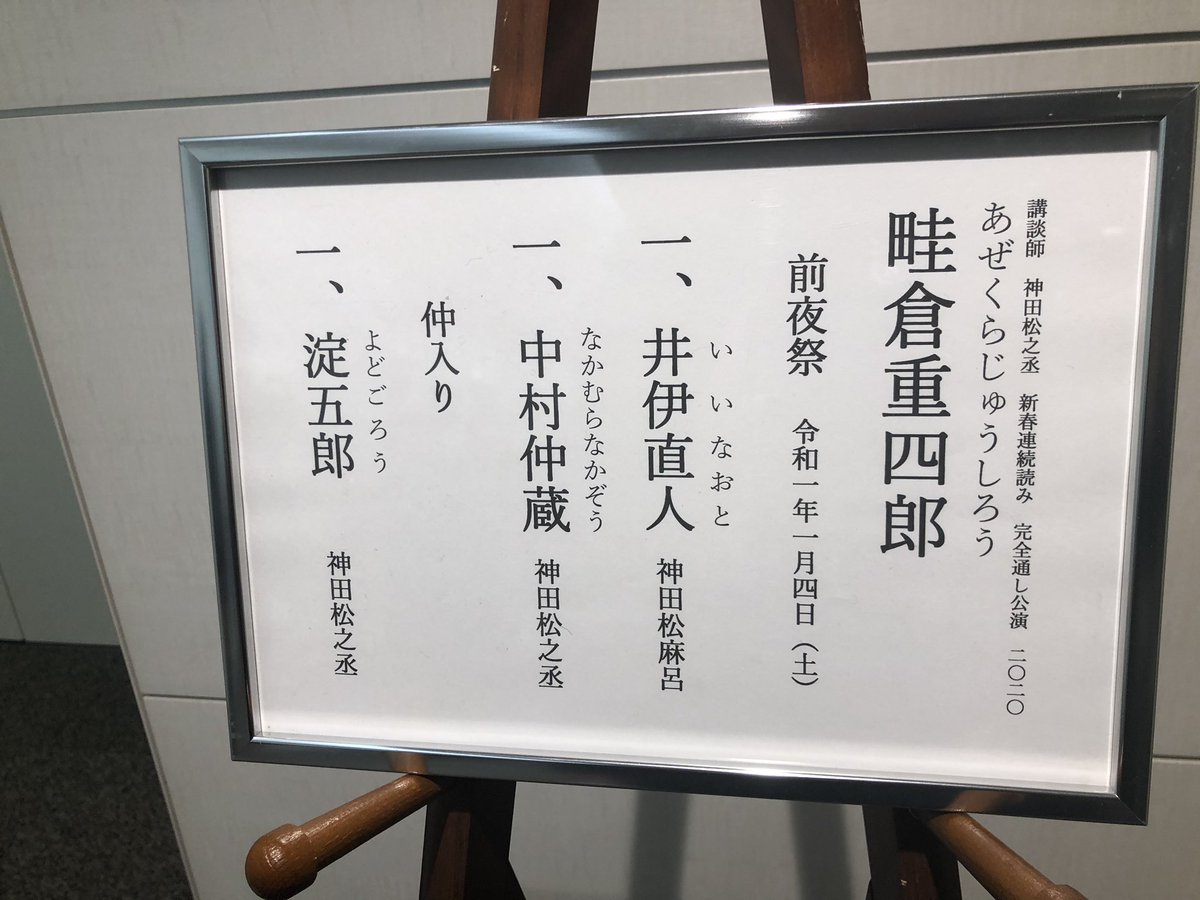 講談師 神田松之丞 新春連続読み 完全通し公演 二〇二〇
あぜくらじゅうしろう
畦倉重四郎
前夜祭 令和一年一月四日（土）
いいなおと
一、井伊直人 神田松麻呂
なかむらなかぞう
一、中村仲蔵 神田松之丞
仲入り
よどごろう
一、淀五郎 神田松之丞